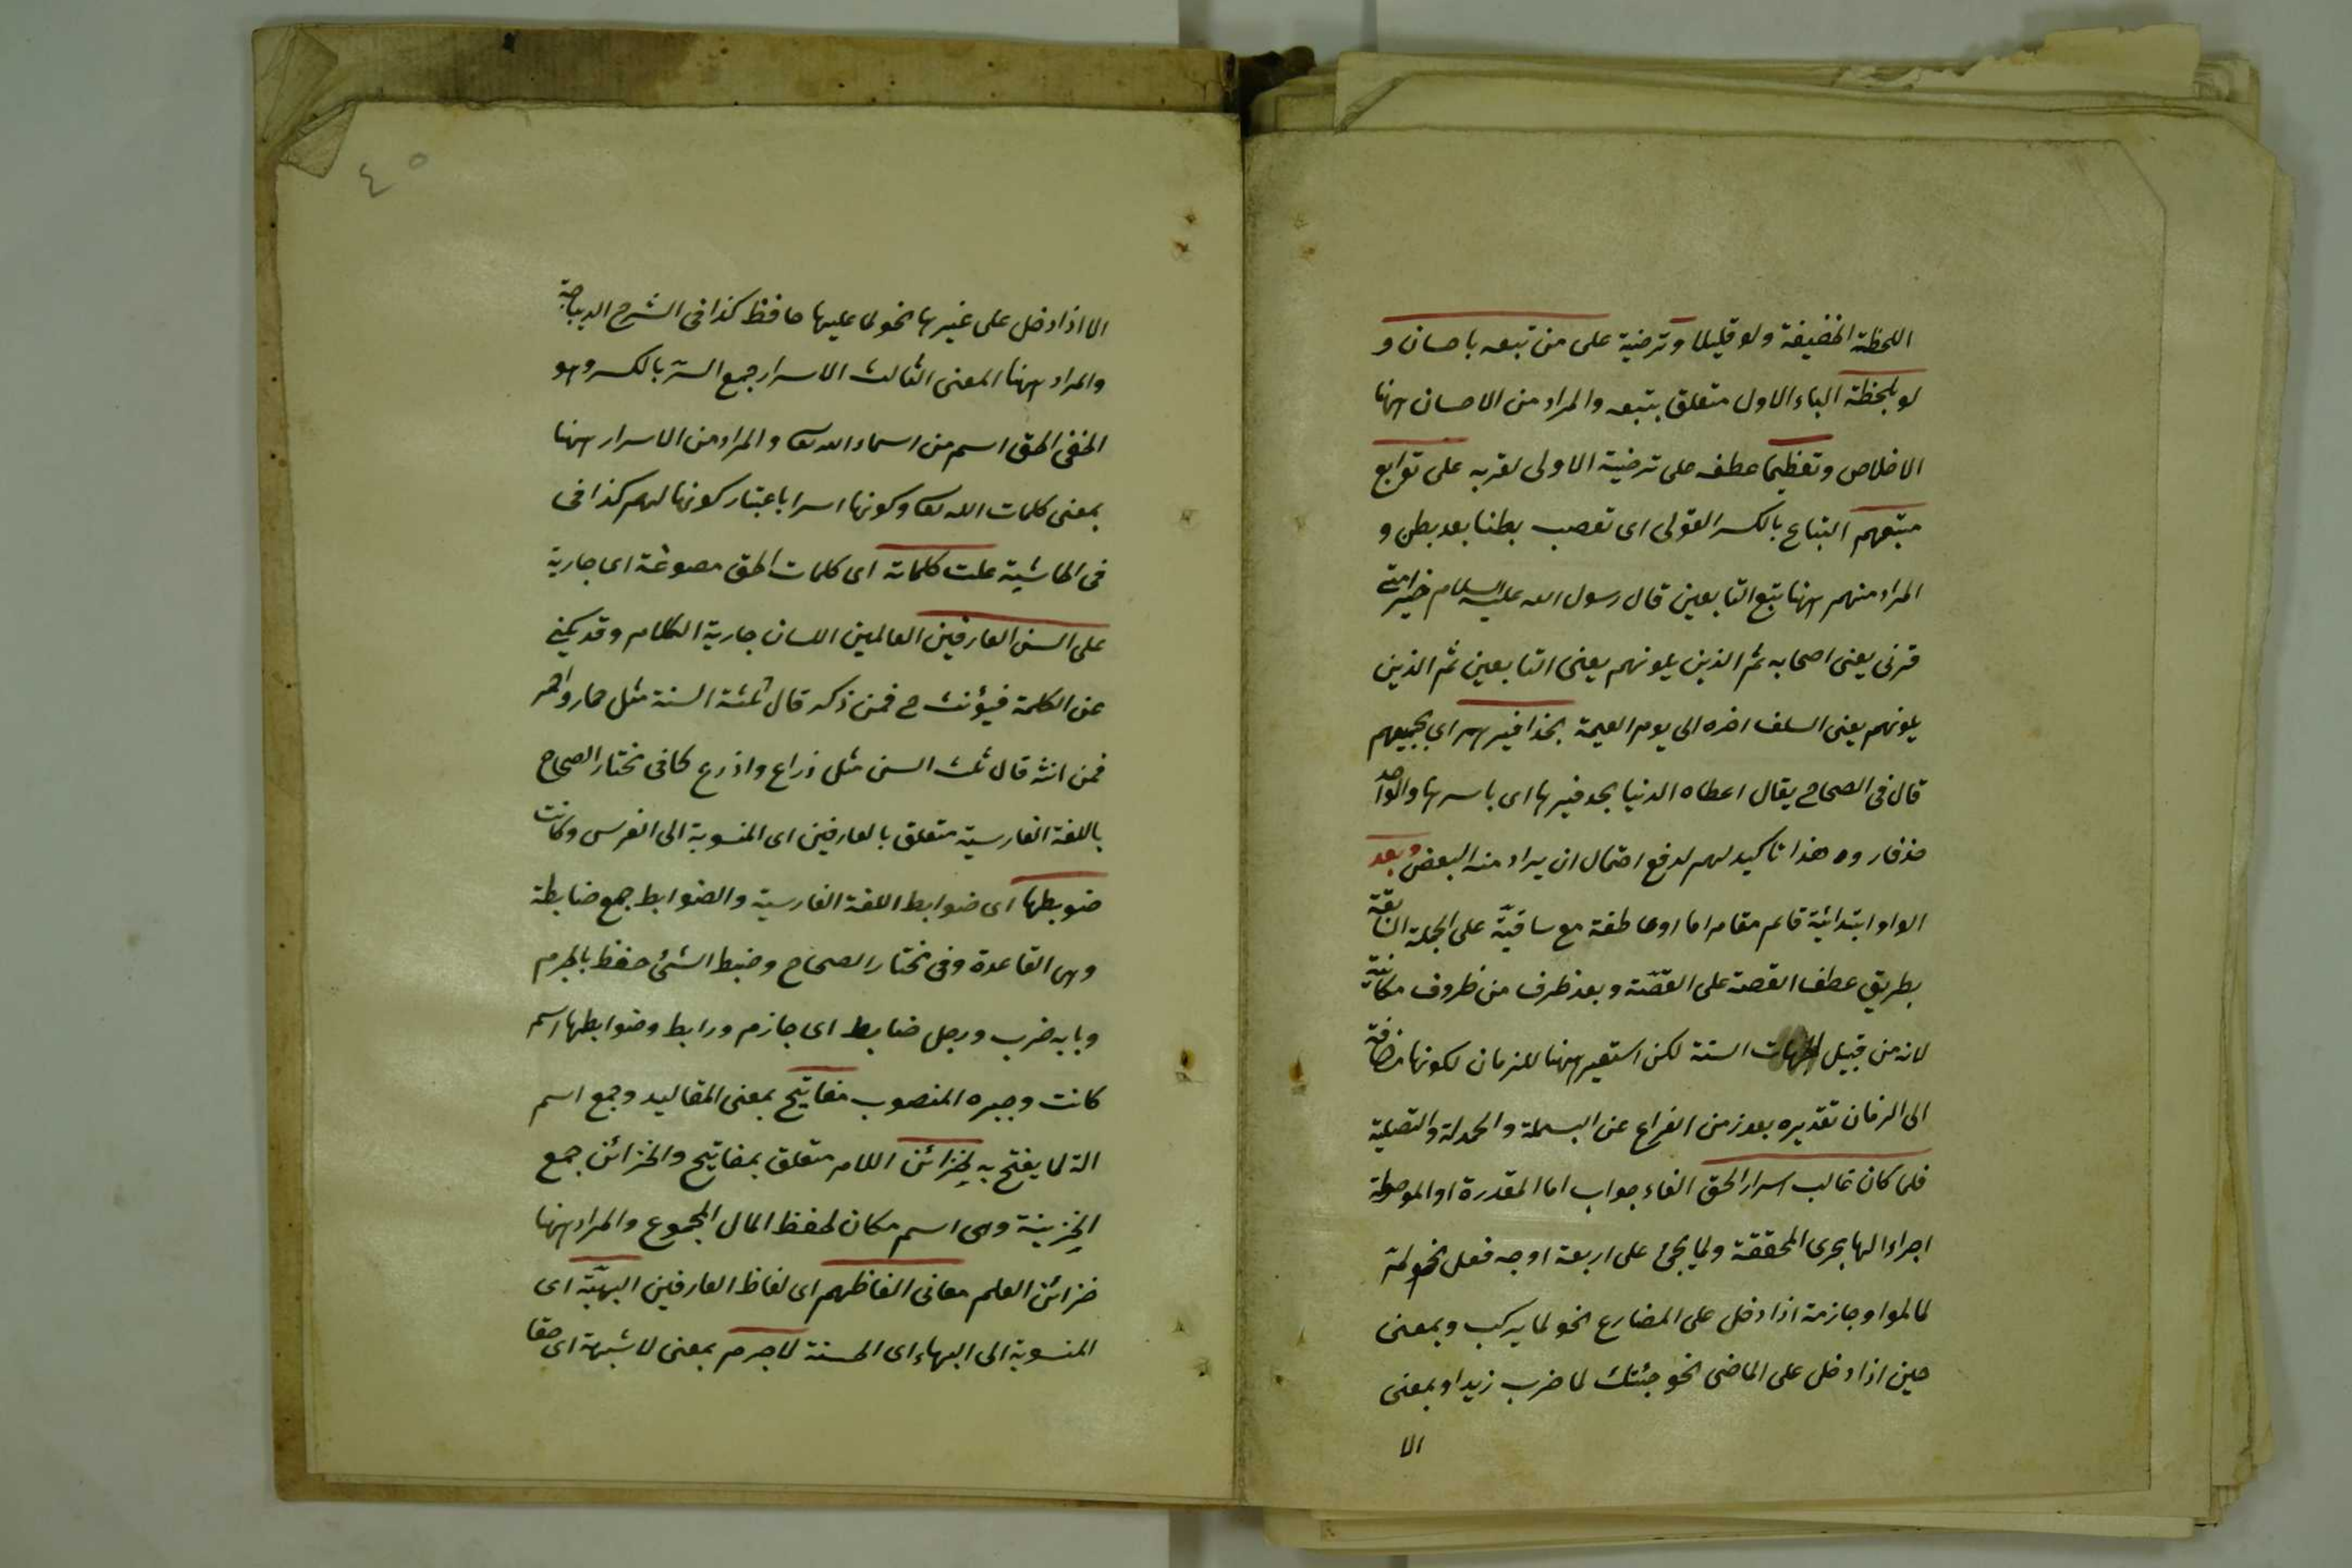 اللحظة الخفيفة ولو قليلا وترضية على من تبعه باحسان و
لو بلحظة الباء الاول متعلق بتبعه والمراد من الاحسان ههنا
الاخلاص وتعظيما عطف على ترضية الاولى لقربه على توابع
متبعهم التباع بالكسر القولى اى تعصب بطنا بعد بطن و
المراد منهم ههنا تبع التابعين قال رسول الله عليه السلام خير امتى
قرنى يعنى اصحابه ثم الذين يلونهم يعنى التابعين ثم الذين
يلونهم يعنى السلف اخره الى يوم القيمة بحذافيرهم اى بجميعهم
قال فى الصحاح يقال اعطاه الدنيا بحدفيرها اى باسرها والواحد
حذفار وه هذا تاكيد لهم لدفع احتمال ان يراد منه البعض وبعد
الواو ابتدائية قائم مقام اما او عاطفة مع ساقيّة على الجملة السابقة
بطريق عطف القصة على القصّة وبعد ظرف من ظروف مكانيّة
لانه من قبيل الجهات الستة لكن استعير ههنا للزمان لكونها مضافة
الى الزمان تقديره بعد زمن الفراغ عن البسملة والحمدلة والتصلية
فلما كان غالب اسرار الحق الفاء جواب اما المقدرة او الموصولة
اجراء لها بجرى المحققة ولما يجئ على اربعة اوجه فعل نحو لمّ
لما لموا وجازمة اذا دخل على المضارع نحو لما يركب وبمعنى
حين اذا دخل على الماضى نحو جئتك لما ضرب زيد او بمعنى
الا
٤٥
الا اذا دخل على غيرها نحو لما عليها حافظ كذا فى الشرح الديباجة
والمراد ههنا المعنى الثالث الاسرار جمع السرّ بالكسر وهو
الخفى الحق اسم من اسماء الله تعا والمراد من الاسرار ههنا
بمعنى كلمات الله تعا وكونها اسرا باعتبار كونها لهم كذا فى
فى الحاشية علت كلماته اى كلمات الحق مصوغة اى جارية
على السن العارفين العالمين اللسان جارية الكلام وقد يكنى
عن الكلمة فيؤنث ح فمن ذكر قال ثلثة السنة مثل حمار واحمر
فمن انثه قال ثلث السن مثل ذراع واذرع كما فى مختار الصحاح
باللغة الفارسية متعلق بالعارفين اى المنسوبة الى الفرس وكانت
ضوبطها اى ضوابط اللغة الفارسية والضوابط جمع ضابطة
وهى القاعدة وفى مختار الصحاح وضبط الشئ حفظ بالجرم
وبابه ضرب ورجل ضابط اى جازم ورابط وضوابطها اسم
كانت وخبره المنصوب مفاتيح بمعنى المقاليد وجمع اسم
الة لما يفتح به لخزائن اللام متعلق بمفاتيح والخزائن جمع
الخزينة وهى اسم مكان لحفظ المال المجموع والمراد ههنا
خزائن العلم معانى الفاظهم اى لفاظ العارفين البهيّة اى
المنسوبة الى البهاء اى الحسنة لاجرم بمعنى لا شبهة اى حقا